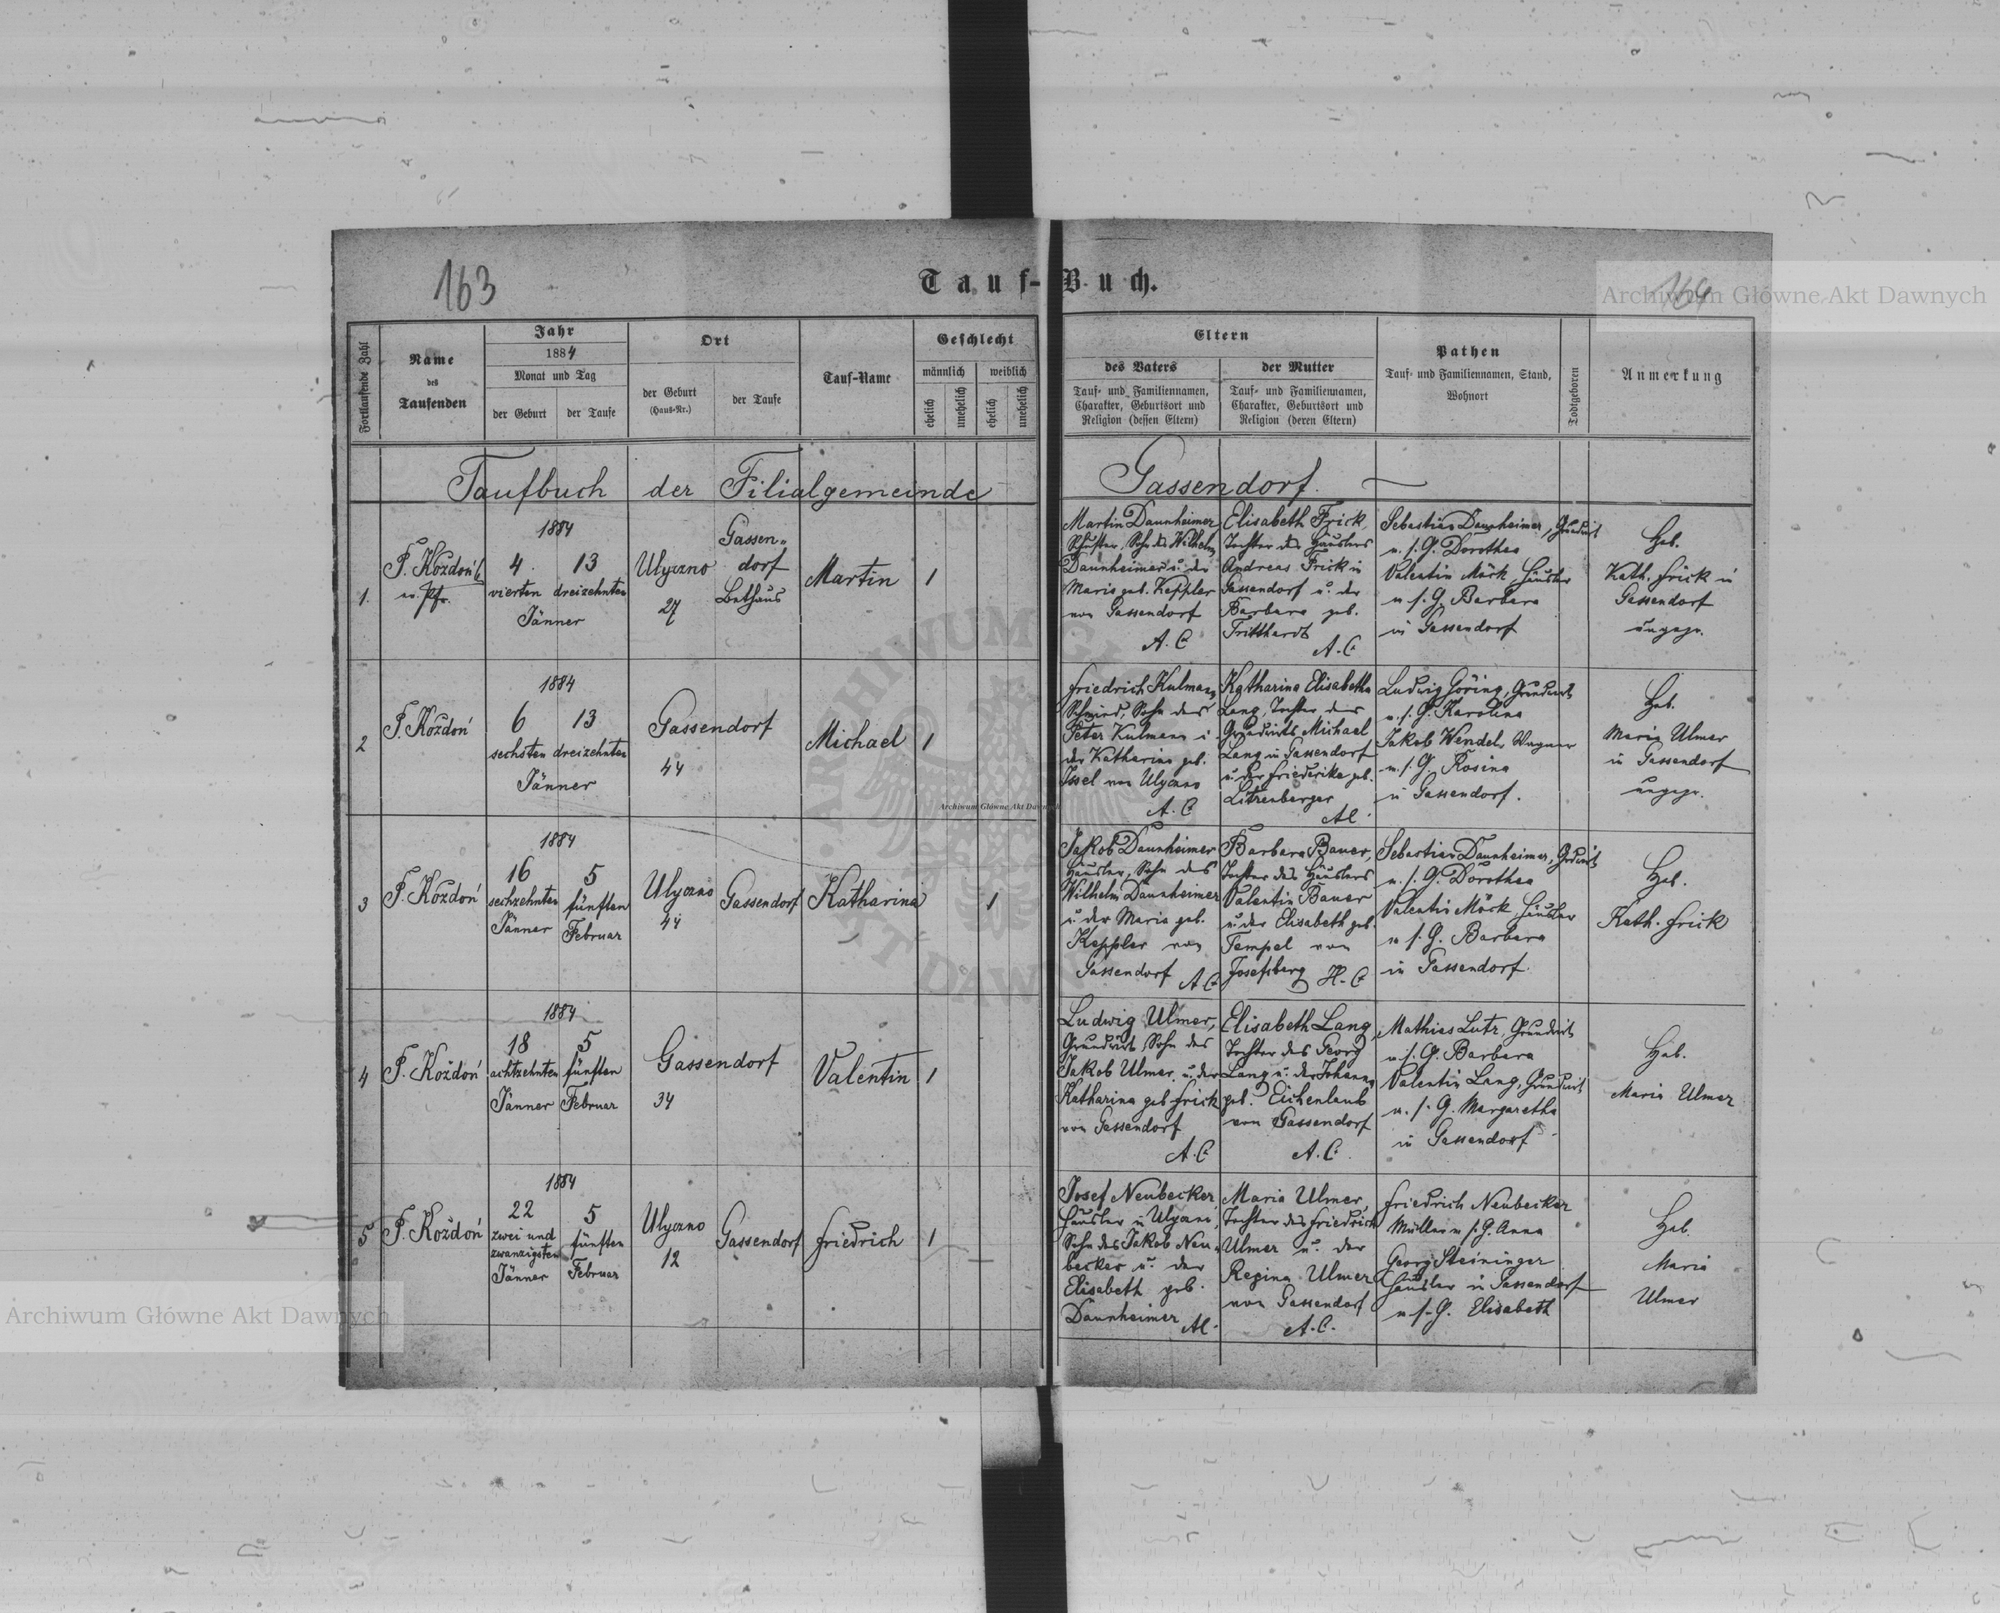 163
Tauf-Buch.
164
Archiwum Główne Akt Dawnych
Fortlaufende Zahl
Name
des
Taufenden
Jahr
1884
Monat und Tag
der Geburt
der Taufe
Ort
der Geburt
(Haus-Nr.)
der Taufe
Tauf-Name
Geschlecht
männlich
weiblich
ehelich
unehelich
ehelich
unehelich
Eltern
des Vaters
Tauf- und Familiennamen,
Charakter, Geburtsort und
Religion (dessen Eltern)
der Mutter
Tauf- und Familiennamen,
Charakter, Geburtsort und
Religion (deren Eltern)
Pathen
Tauf- und Familiennamen, Stand,
Wohnort
Todtgeboren
Anmerkung
Taufbuch der Filialgemeinde Gassendorf.
1.
F. Kozdoń
ev. Pfr.
1884
4. 13
vierten dreizehnten
Jänner
Ulyczno
27
Gassen„
dorf
Bethaus
Martin
1
Martin Daunheimer
Schuster, Sohn des Wilhelm
Daunheimer u. der
Maria geb. Keppler
von Gassendorf
A. C
Elisabeth Frick,
Tochter des Häuslers
Andreas Frick in
Gassendorf u. der
Barbara geb.
Tritthardt
A. C
Sebastian Daunheimer, Grundwirt
u. s. G. Dorothea
Valentin Möck, Häusler
u. s. G. Barbara
in Gassendorf
Heb.
Kath. Frick in
Gassendorf
ungepr.
2
F. Kozdoń
1884
6 13
sechsten dreizehnten
Jänner
Gassendorf
44
Michael
1
Friedrich Kulmann,
Schmied, Sohn des
Peter Kulmann u
der Katharina geb.
Issel von Ulyczno
A. C
Katharina Elisabetha
Lang, Tochter des
Grundwirts Michael
Lang in Gassendorf
u. der Friederike geb.
Litzenberger
AC
Ludwig Göring, Grundwirt
u. s. G. Karolina
Jakob Wendel, Wagner
u. s. G. Rosina
in Gassendorf.
Heb.
Maria Ulmer
in Gassendorf
ungepr.
3
F. Kozdoń
1884
16 5
sechzehnten fünften
Jänner Februar
Ulyczno
44
Gassendorf
Katharina
1
Jakob Daunheimer
Häusler, Sohn des
Wilhelm Daunheimer
u. der Maria geb.
Keppler von
Gassendorf A C
Barbara Bauer,
Tochter des Häuslers
Valentin Bauer
u. der Elisabeth geb.
Tempel von
Josefsberg H. C
Sebastian Daunheimer, Grundwirt
u. s. G. Dorothea
Valentin Möck, Häusler
u s. G. Barbara
in Gassendorf.
Heb.
Kath. Frick
4
F. Kozdoń
1884
18 5
achtzehnten fünften
Jänner Februar
Gassendorf
34
Valentin
1
Ludwig Ulmer,
Grundwirt, Sohn des
Jakob Ulmer u. der
Katharina geb Frick
von Gassendorf
A. C
Elisabeth Lang,
Tochter des Georg
Lang u. der Johanna
geb. Eichenlaub
von Gassendorf
A. C.
Mathias Lutz, Grundwirt,
u. s. G. Barbara
Valentin Lang, Grundwirt
u. s. G. Margaretha
in Gassendorf
Heb.
Maria Ulmer
5
F. Kozdoń
1884
22 5
zwei und fünften
zwanzigsten
Jänner Februar
Ulyczno
12
Gassendorf
Friedrich
1
Josef Neubecker,
Häusler in Ulyczno,
Sohn des Jakob Neu-
becker u. der
Elisabeth geb.
Daunheimer AC
Maria Ulmer,
Tochter des Friedrich
Ulmer u. der
Regina Ulmer
von Gassendorf
A. C.
Friedrich Neubecker
Müller u s. G. Anna
Georg Steininger
Häusler in Gassendorf
u. s. G. Elisabeth
Heb
Maria
Ulmer
ARCHIWUM GŁÓWNE AKT DAWNYCH
Archiwum Główne Akt Dawnych
Archiwum Główne Akt Dawnych